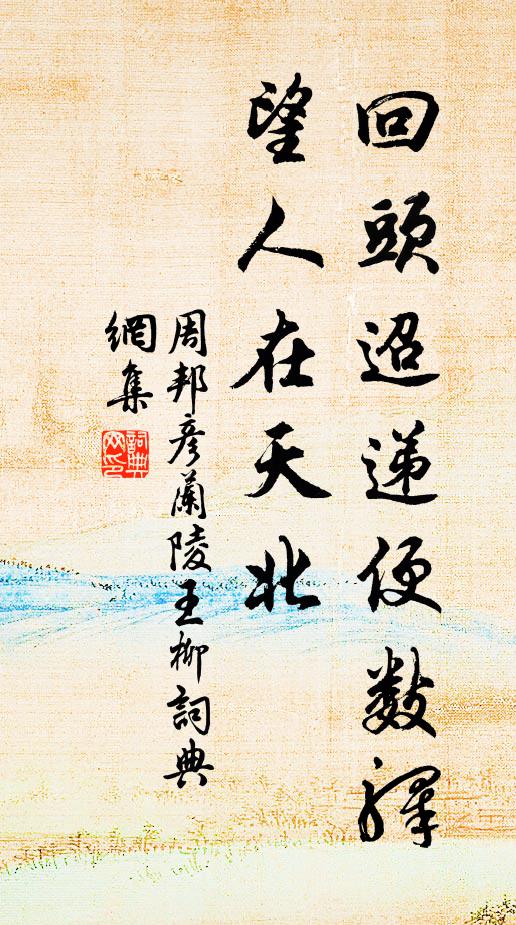 回頭迢遞便數驛
望人在天北
周邦彦蘭陵王柳詞典
網集
詞典
网印